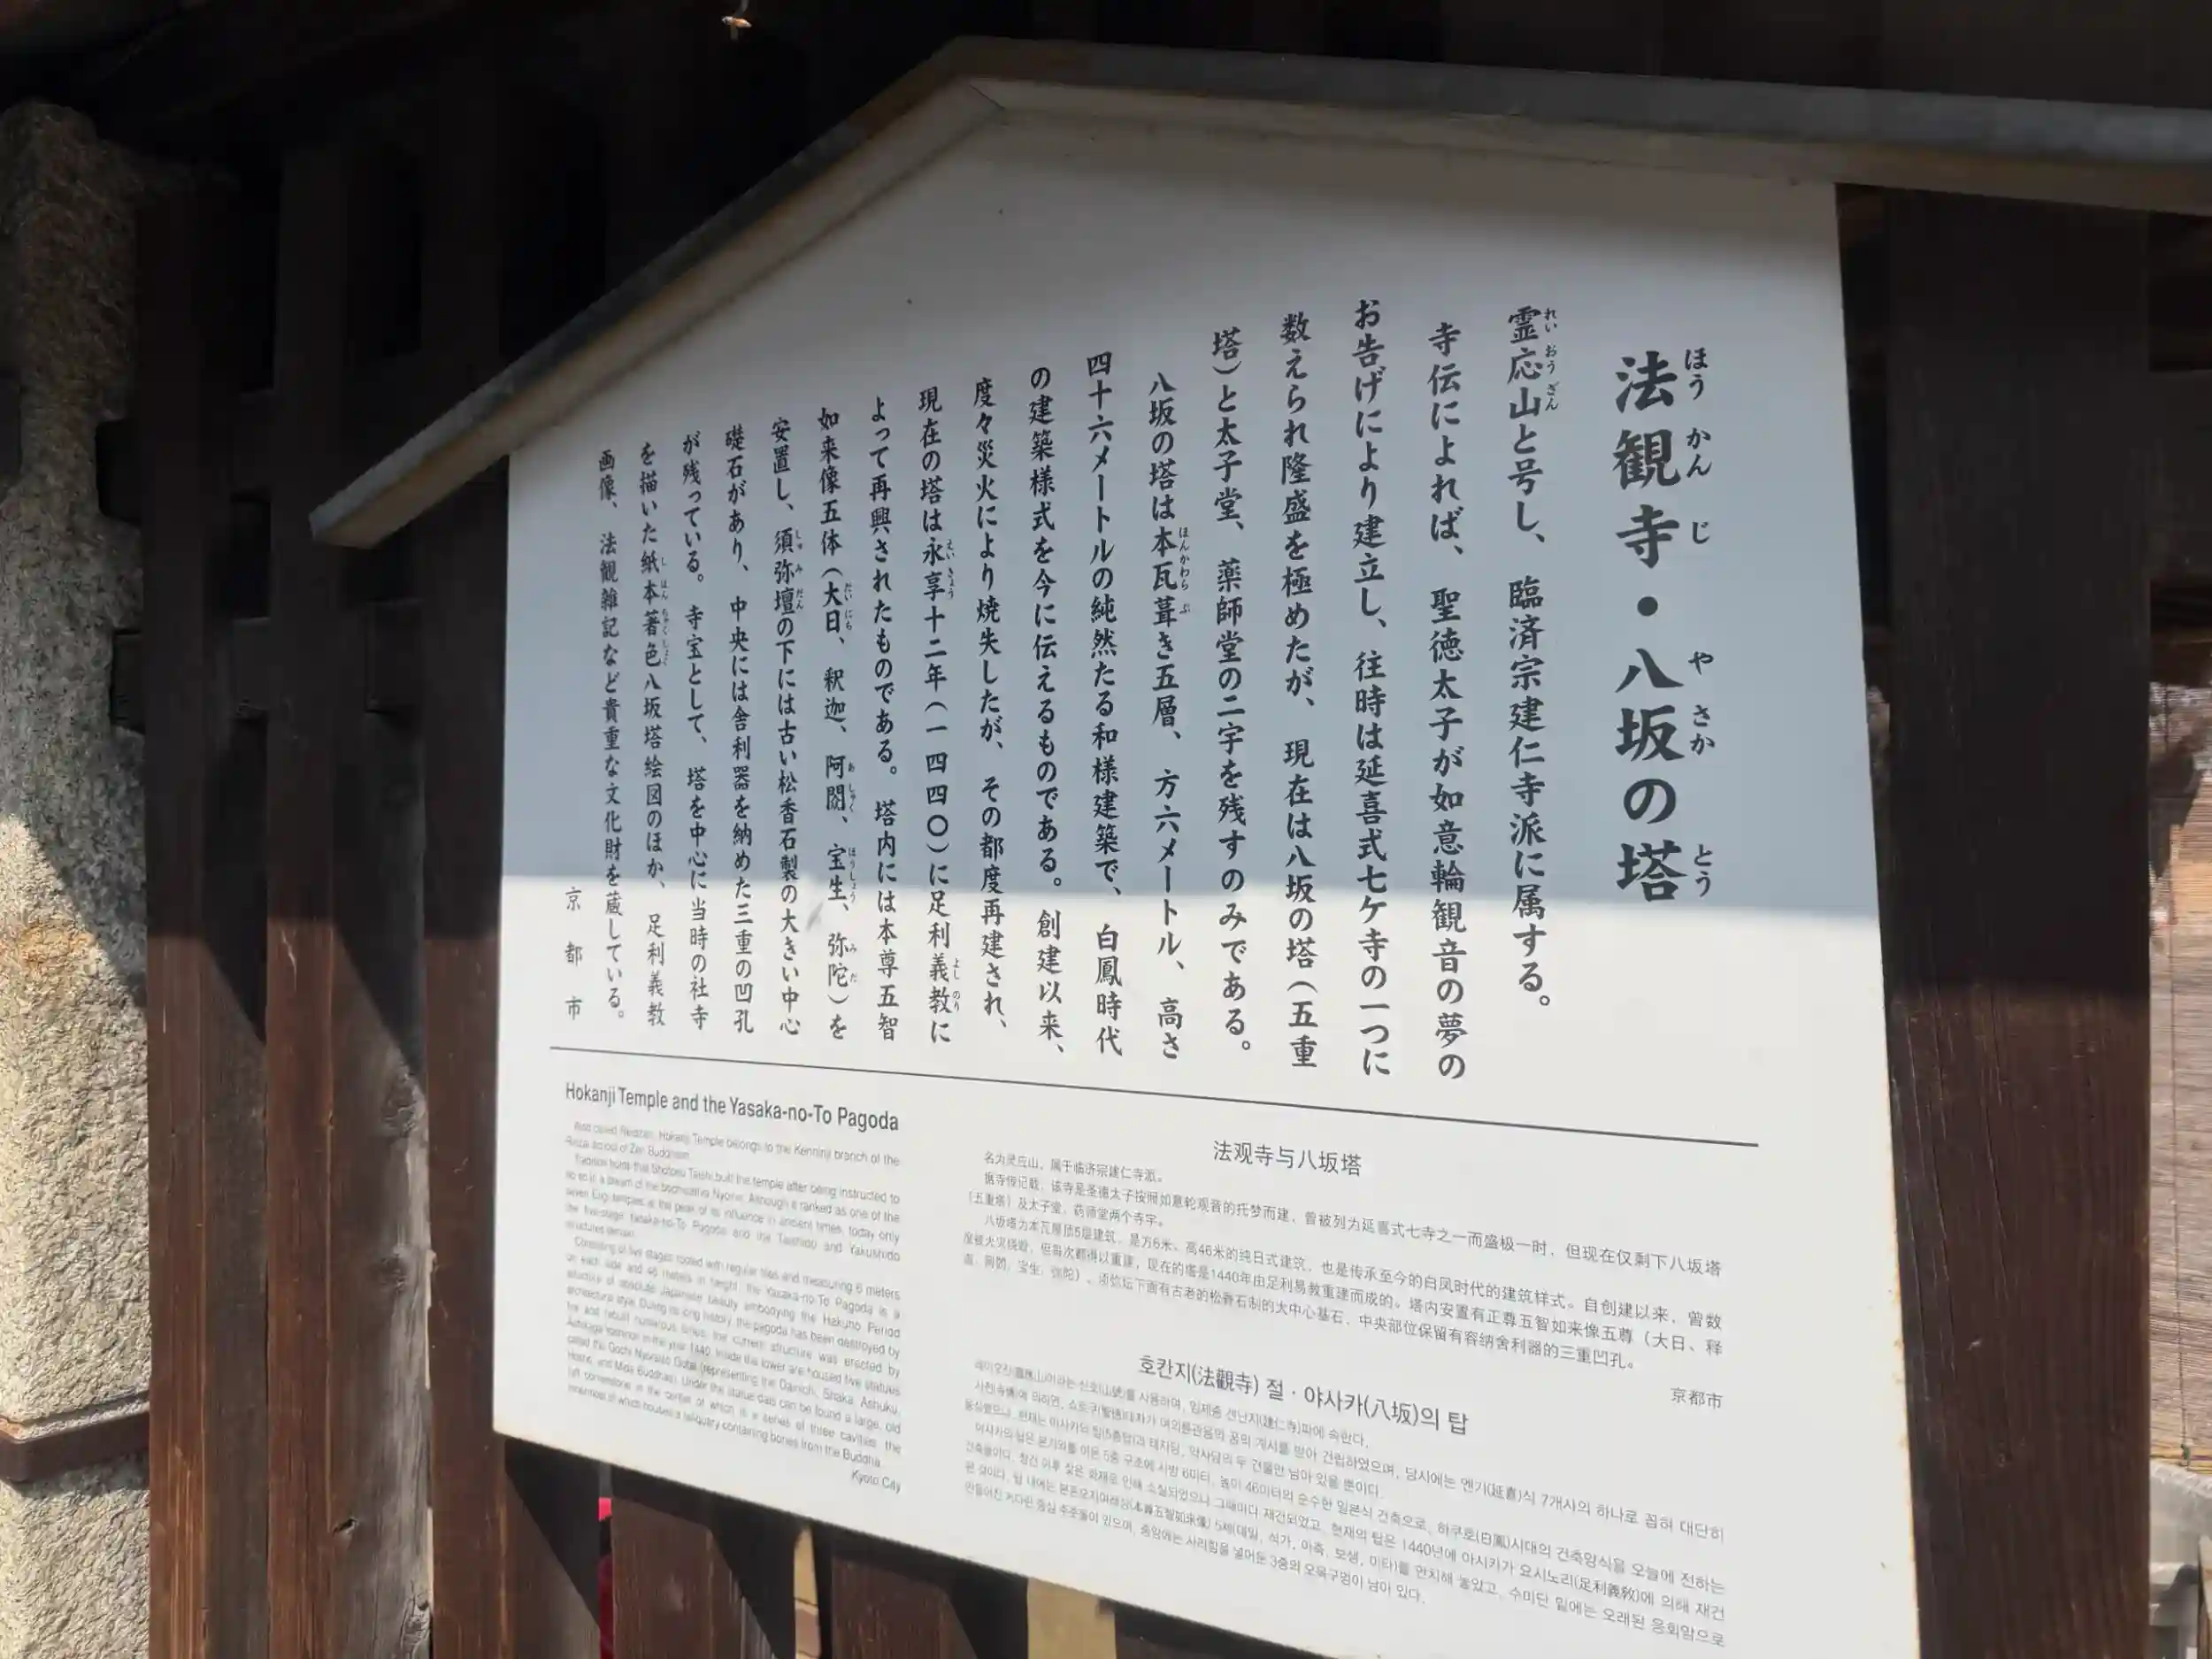 法観寺・八坂の塔
ほうかんじ やさか とう
霊応山と号し、臨済宗建仁寺派に属する。
れいおうざん
寺伝によれば、聖徳太子が如意輪観音の夢の
お告げにより建立し、往時は延喜式七ケ寺の一つに
数えられ隆盛を極めたが、現在は八坂の塔（五重
塔）と太子堂、薬師堂の二宇を残すのみである。
八坂の塔は本瓦葺き五層、方六メートル、高さ
ほんかわらぶ
四十六メートルの純然たる和様建築で、白鳳時代
の建築様式を今に伝えるものである。創建以来、
度々災火により焼失したが、その都度再建され、
現在の塔は永享十二年（一四四〇）に足利義教に
えいきょう よしのり
よって再興されたものである。塔内には本尊五智
如来像五体（大日、釈迦、阿閦、宝生、弥陀）を
だいにち あしゅく ほうしょう みだ
安置し、須弥壇の下には古い松香石製の大きい中心
しゅみだん
礎石があり、中央には舎利器を納めた三重の凹孔
が残っている。寺宝として、塔を中心に当時の社寺
を描いた紙本著色八坂塔絵図のほか、足利義教
しほんちゃくしょく
画像、法観雑記など貴重な文化財を蔵している。
京都市
Hokanji Temple and the Yasaka-no-To Pagoda
Also called Reiozan, Hokanji Temple belongs to the Kenninji branch of the
Rinzai school of Zen Buddhism.
Tradition holds that Shotoku Taishi built the temple after being instructed to
do so in a dream of the bodhisattva Nyoirin. Although it ranked as one of the
seven Engi temples at the peak of its influence in ancient times, today only
the five-stage Yasaka-no-To Pagoda and the Taishido and Yakushido
structures remain.
Consisting of five stages roofed with regular tiles and measuring 6 meters
on each side and 46 meters in height, the Yasaka-no-To Pagoda is a
structure of absolute Japanese beauty embodying the Hakuho Period
architectural style. During its long history, the pagoda has been destroyed by
fire and rebuilt numerous times; the current structure was erected by
Ashikaga Yoshinori in the year 1440. Inside the tower are housed five statues
called the Gochi Nyoraizo Gotai (representing the Dainichi, Shaka, Ashuku,
Hosho, and Mida Buddhas). Under the statue dais can be found a large, old
tuff cornerstone in the center of which is a series of three cavities, the
innermost of which houses a reliquary containing bones from the Buddha.
Kyoto City
法观寺与八坂塔
名为灵应山，属于临济宗建仁寺派。
据寺传记载，该寺是圣德太子按照如意轮观音的托梦而建，曾被列为延喜式七寺之一而盛极一时，但现在仅剩下八坂塔
（五重塔）及太子堂，药师堂两个寺宇。
八坂塔为本瓦屋顶5层建筑，是方6米、高46米的纯日式建筑，也是传承至今的白凤时代的建筑样式。自创建以来，曾数
度被火灾烧毁，但每次都得以重建，现在的塔是1440年由足利易教重建而成的。塔内安置有正尊五智如来像五尊（大日、释
迦、阿閦，宝生，弥陀）。须弥坛下面有古老的松香石制的大中心基石，中央部位保留有容纳舍利器的三重凹孔。
京都市
호칸지(法觀寺) 절・야사카(八坂)의 탑
레이오잔(靈應山)이라는 산호(山號)를 사용하며, 임제종 겐닌지(建仁寺)파에 속한다.
사전(寺傳)에 의하면, 쇼토쿠(聖德)태자가 여의륜관음의 꿈의 계시를 받아 건립하였으며, 당시에는 엔기(延喜)식 7개사의 하나로 꼽혀 대단히
융성했으나, 현재는 야사카의 탑(5층탑)과 태자당, 약사당의 두 건물만 남아 있을 뿐이다.
야사카의 탑은 본기와를 이은 5층 구조에 사방 6미터, 높이 46미터의 순수한 일본식 건축으로, 하쿠호(白鳳)시대의 건축양식을 오늘에 전하는
건축물이다. 창건 이후 잦은 화재로 인해 소실되었으나 그때마다 재건되었고, 현재의 탑은 1440년에 아시카가 요시노리(足利義敎)에 의해 재건
된 것이다. 탑 내에는 본존오지여래상(本尊五智如來像) 5체(대일, 석가, 아축, 보생, 미타)를 안치해 놓았고, 수미단 밑에는 오래된 응회암으로
만들어진 커다란 중심 주춧돌이 있으며, 중앙에는 사리함을 넣어둔 3중의 오목구멍이 남아 있다.